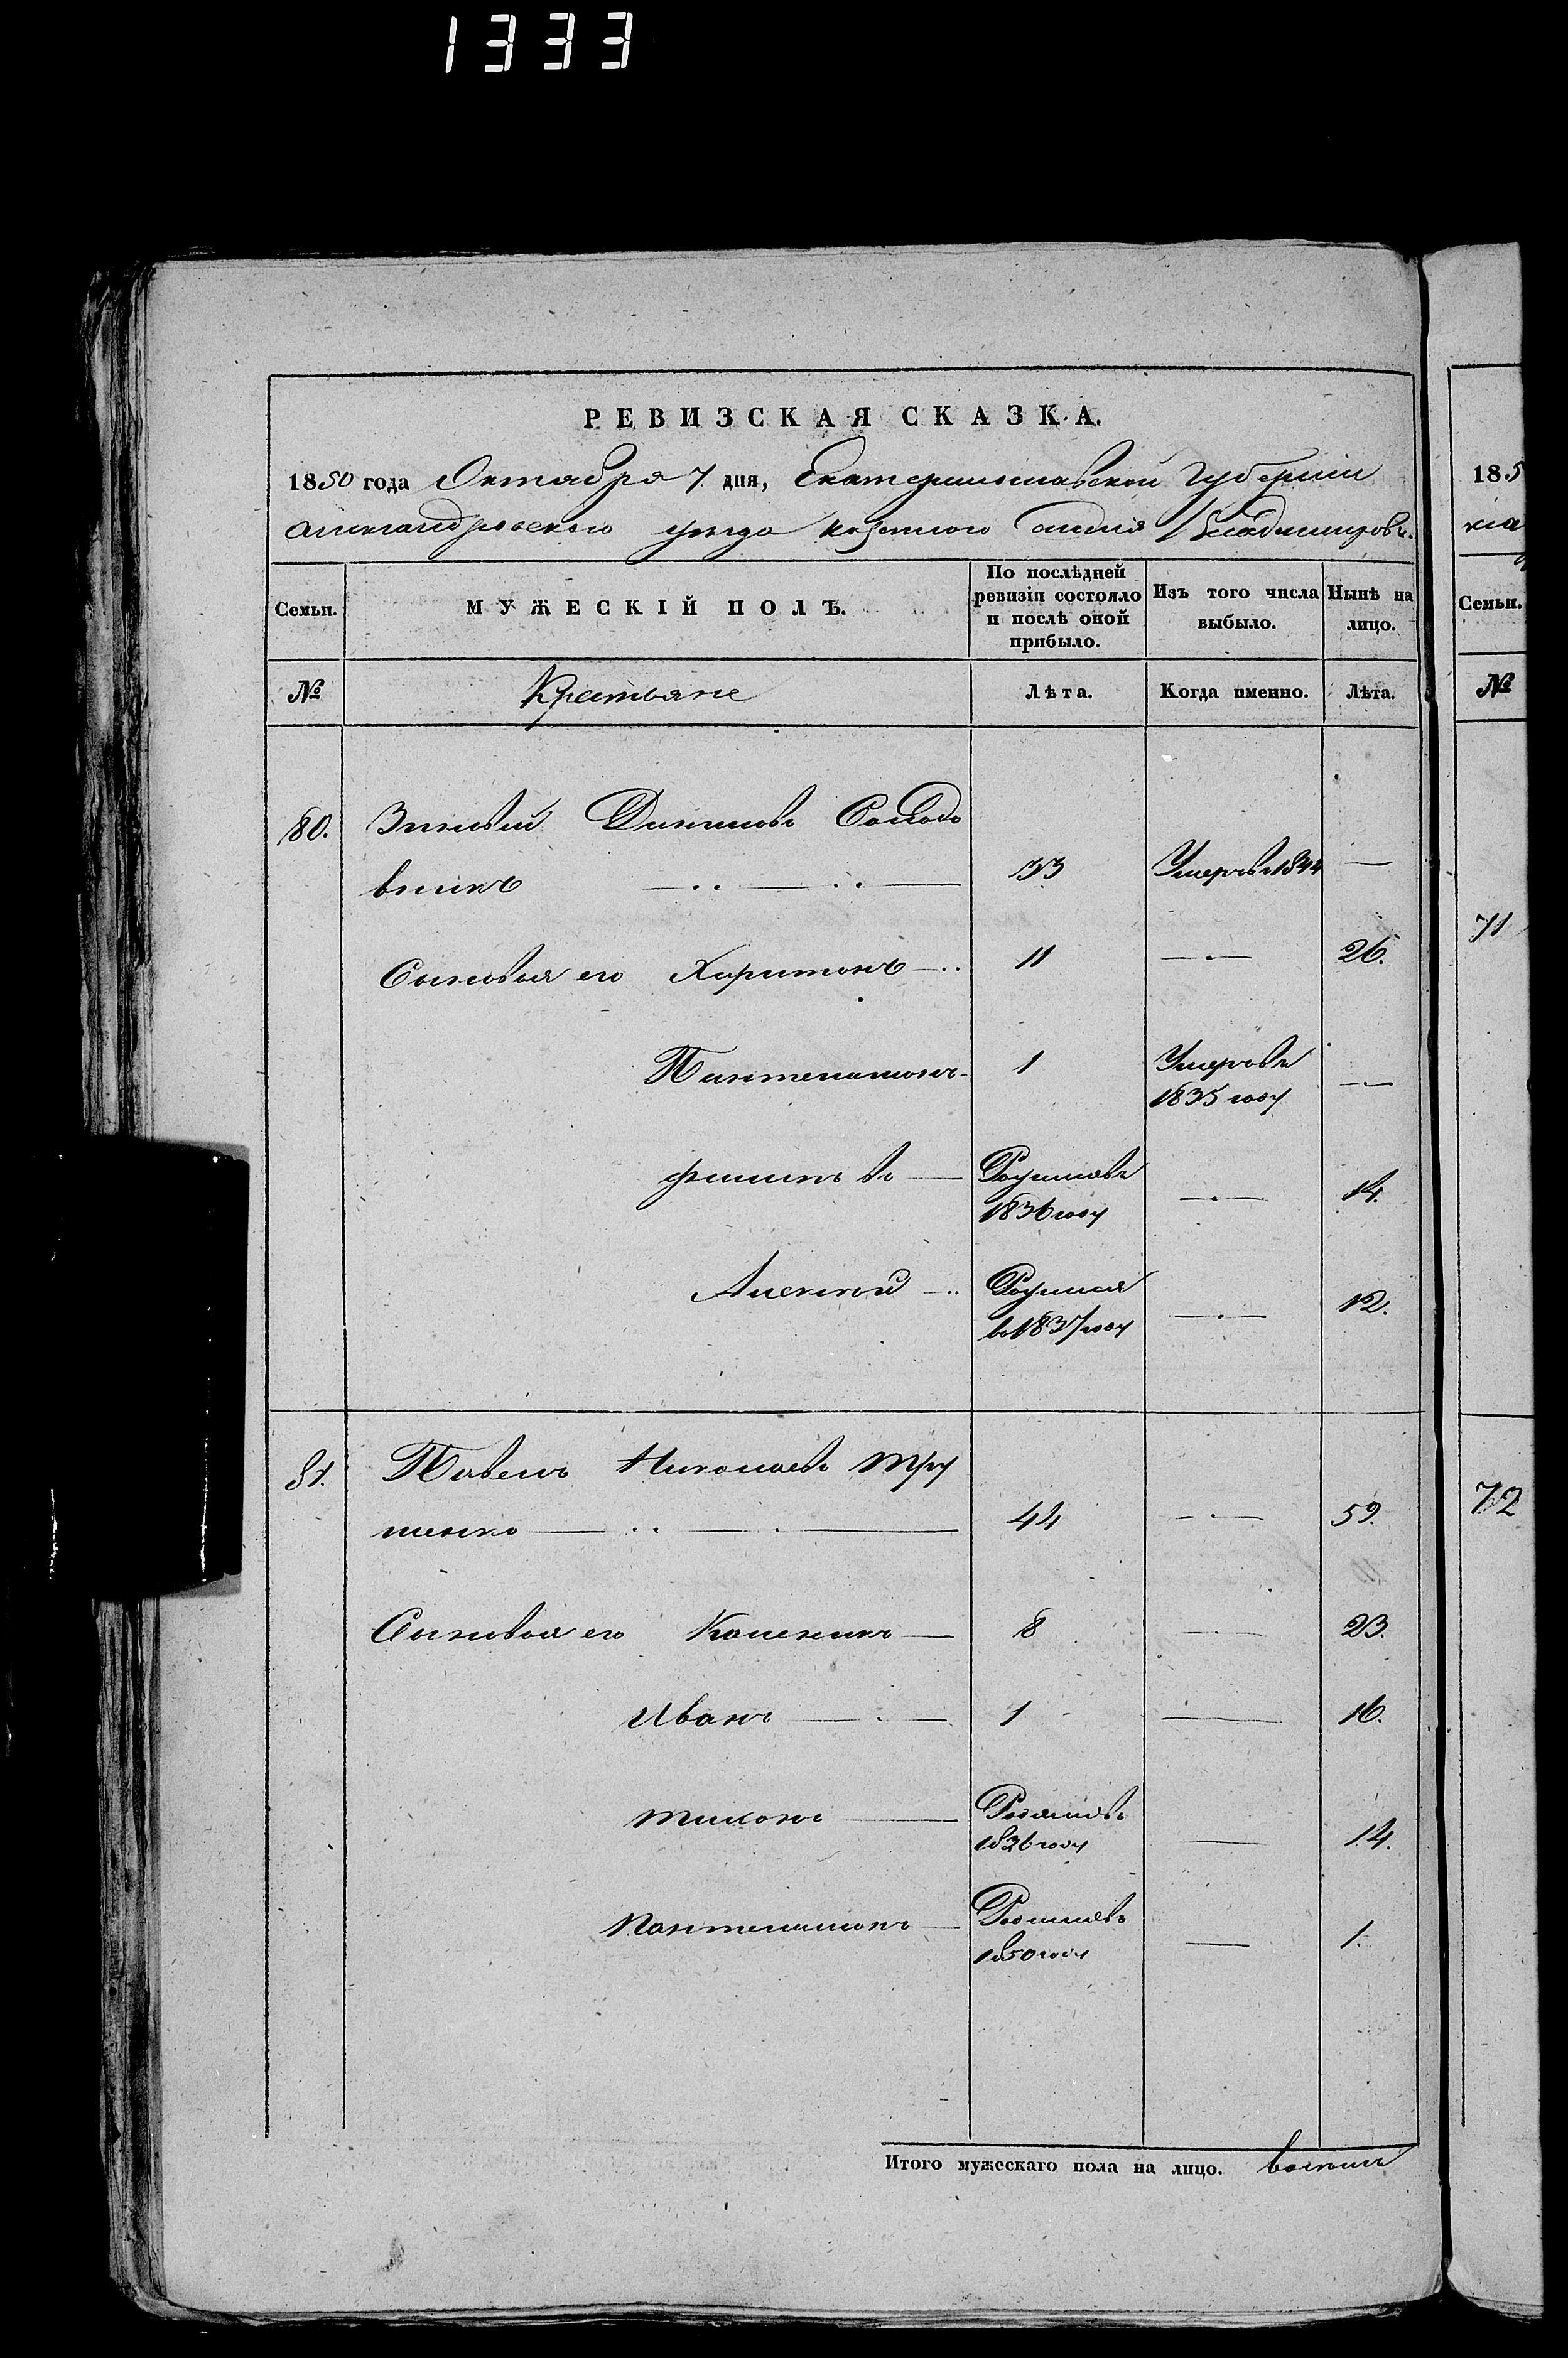 1333
РЕВИЗСКАЯ СКАЗКА.
1850 года Октября 7 дня, Екатеринославской Губернии
Александровского уезда казенного селения Владимировки.
Семьи. МУЖЕСКІЙ ПОЛЪ. По послѣдней ревизіи состояло и послѣ оной прибыло. Изъ того числа выбыло. Нынѣ на лицо.
№ Крестьяне Лѣта. Когда именно. Лѣта.
80. Зиновий Солодо
вникъ 33 Умеръ в 1844 —
Сыновья его Харитонъ 11 — 26.
Пантелимонъ 1 Умеръ въ 1835 году —
Филипъ Родился въ 1836 году — 14.
Алексей Родился въ 1837 году — 12.
81. Павелъ Николаевъ Тру
шенко 44 — 59.
Сыновья его Каленикъ 8 — 23.
Иванъ 1 — 16.
Тихонъ Родился въ 1836 году — 14.
Пантелимонъ Родился въ 1850 году — 1.
Итого мужескаго пола на лицо. восемь
185
кта
Семьи.
№
71
72